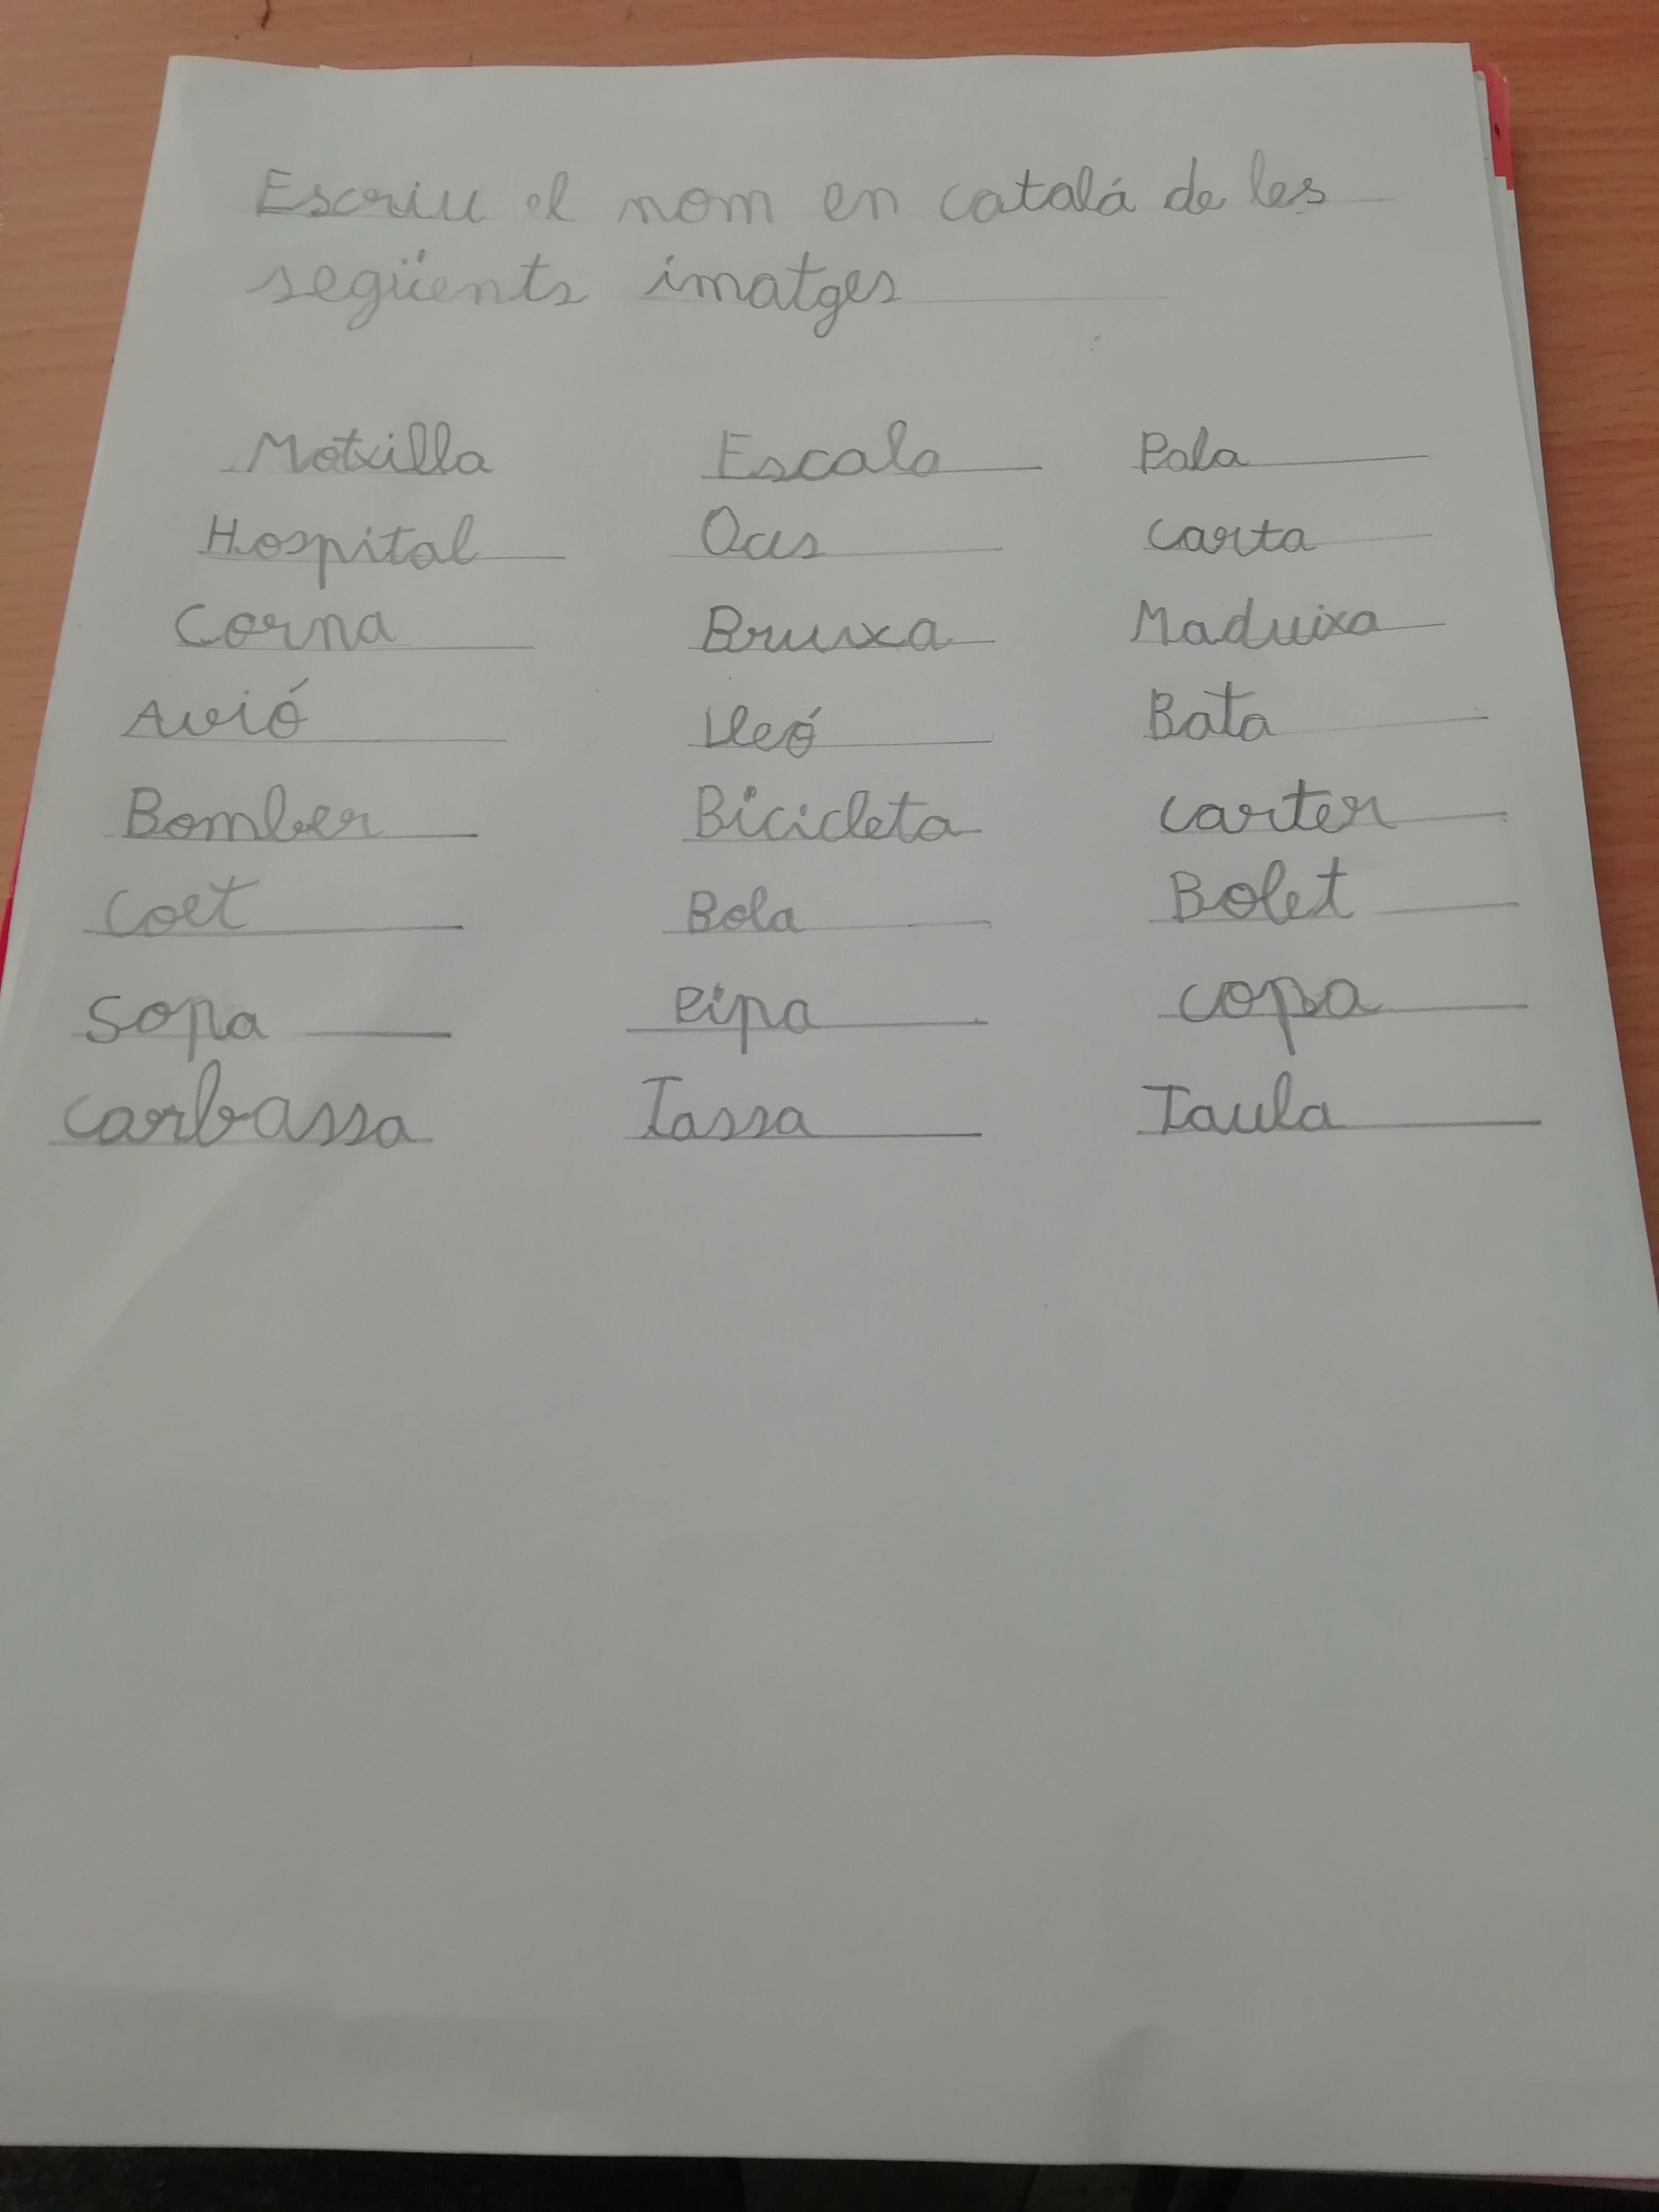 Escriu el nom en català de les
següents imatges
Motxilla Escala Pala
Hospital Ous Carta
Corna Bruixa Maduixa
Avió Lleó Bata
Bomber Bicicleta Carter
Coet Bola Bolet
Sopa Pipa Copa
Carbassa Tassa Taula